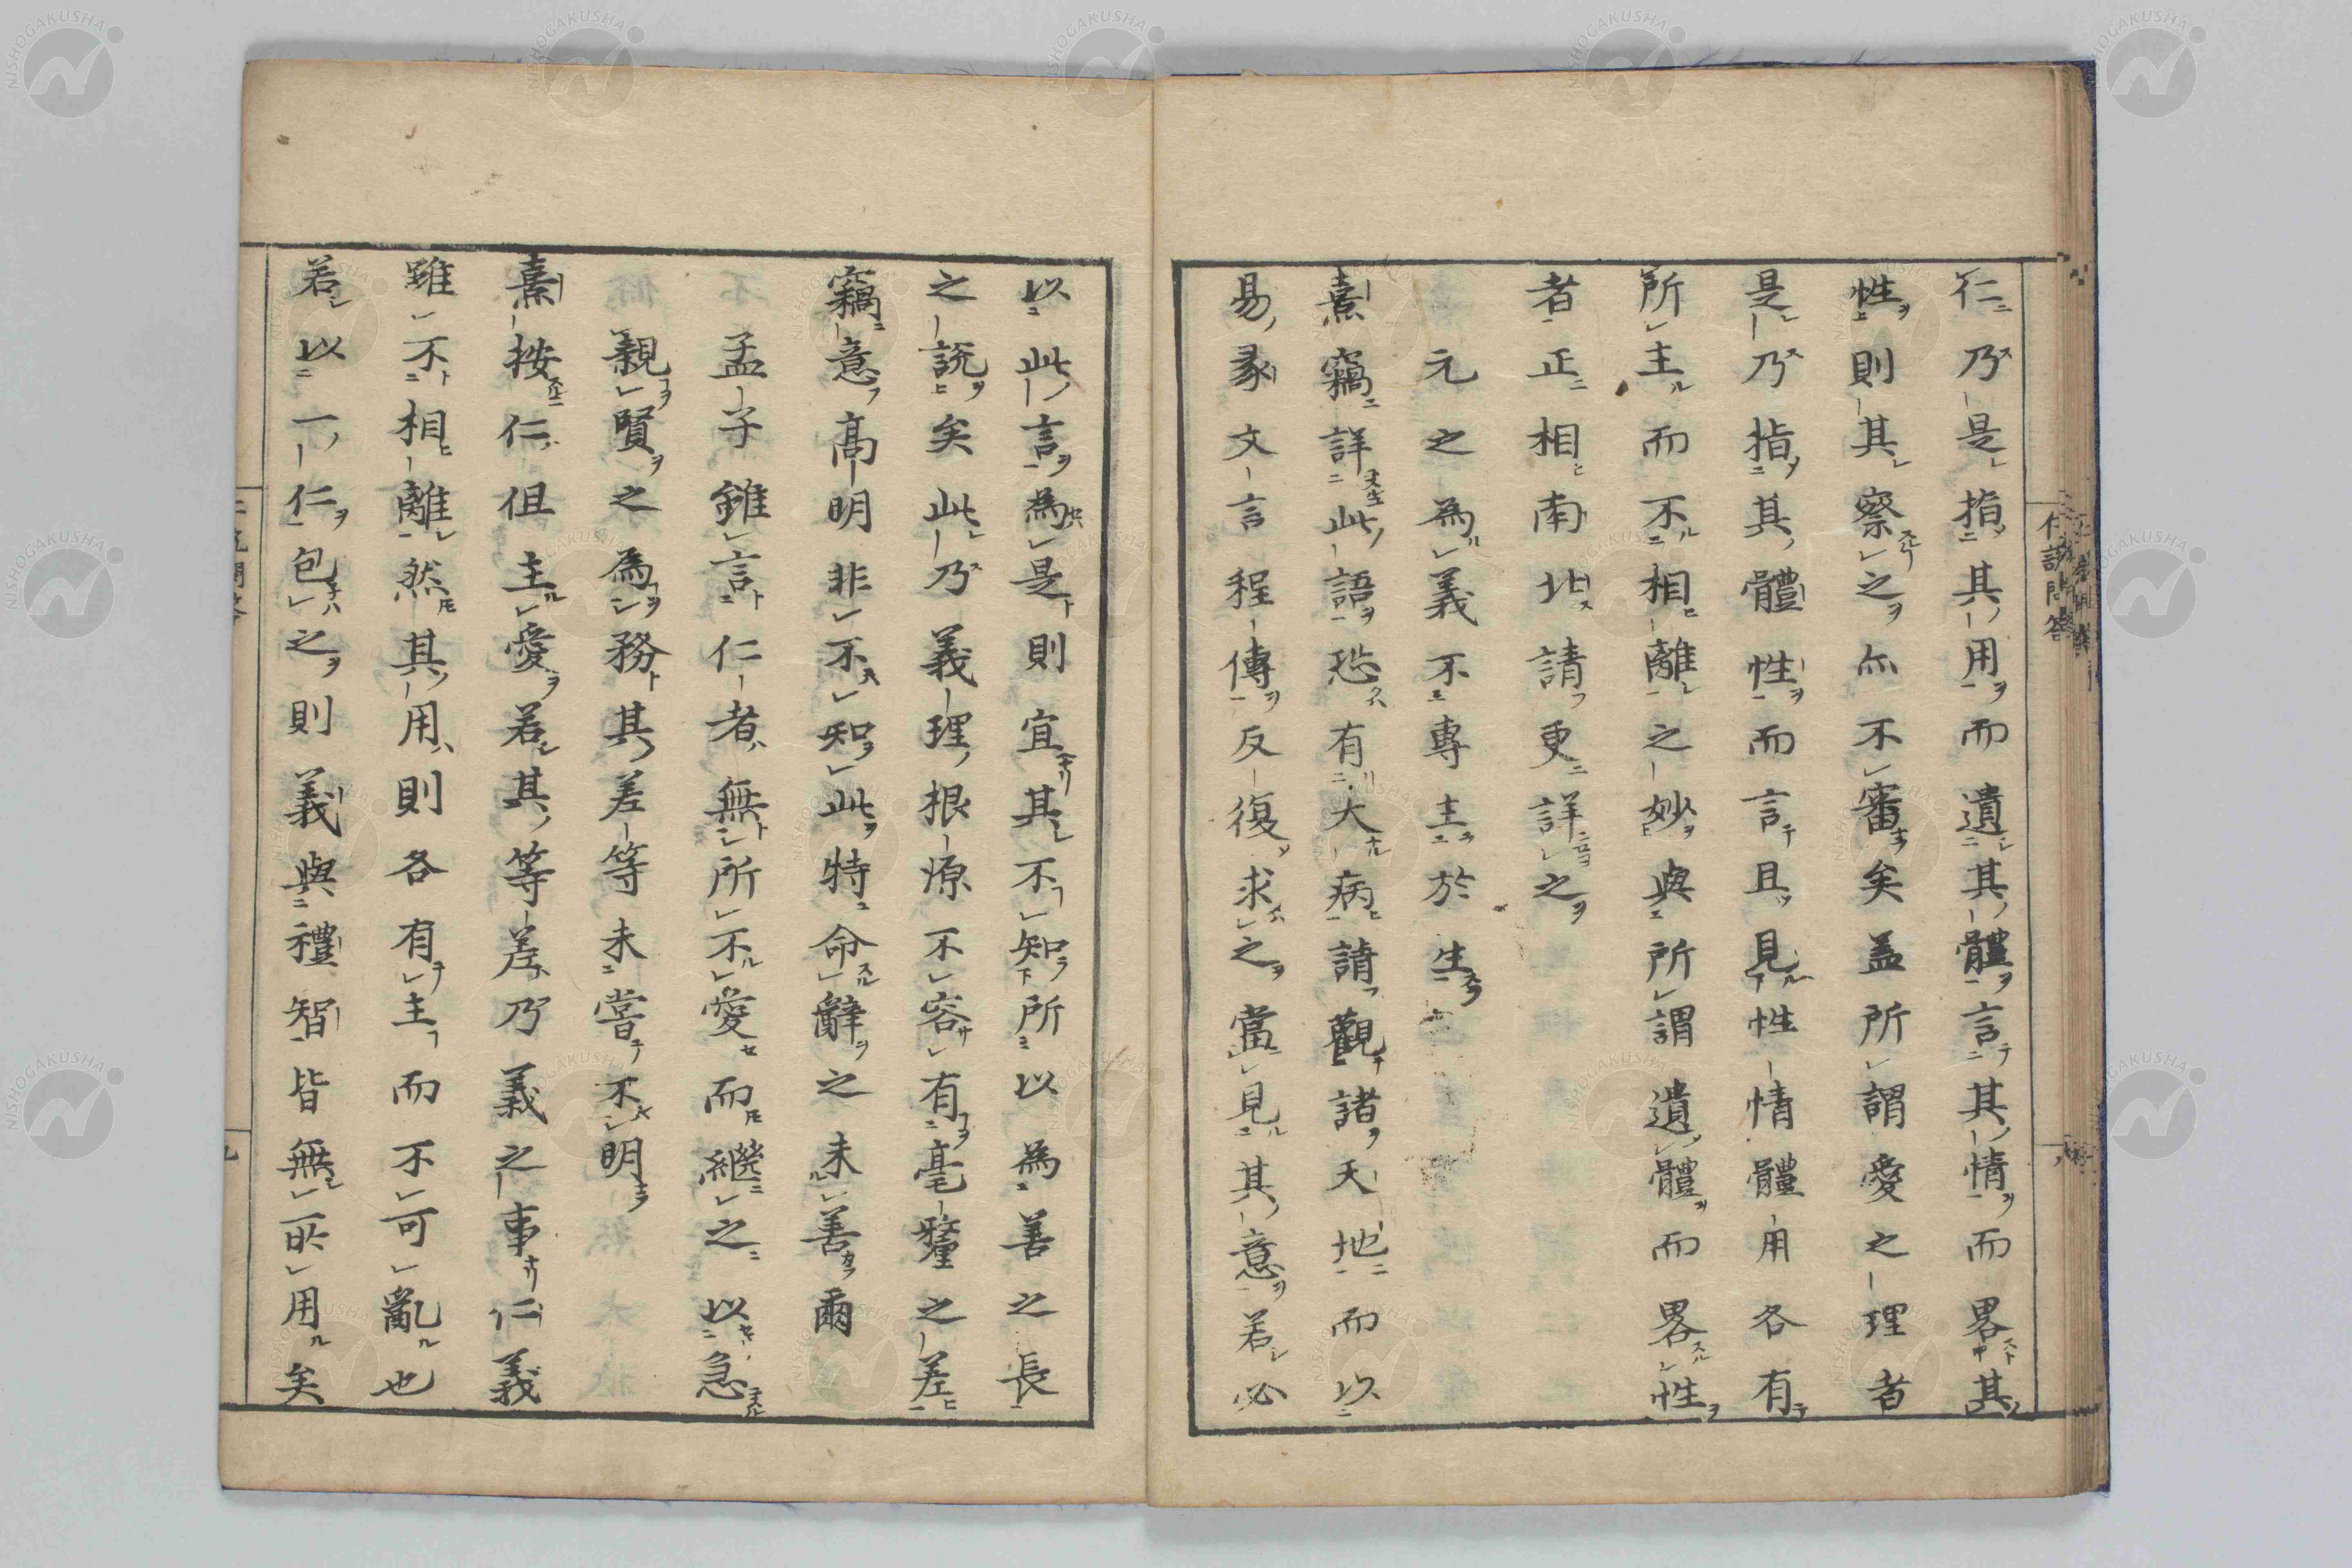 仁乃是指其用而遺其體言其情而畧其
性則其察之亦不審矣盖所謂愛之理者
是乃指其體性而言且見性情體用各有
所主而不相離之妙與所謂遺體而畧性
者正相南北請更詳之
元之為義不專主於生
熹竊詳此語恐有大病請觀諸天地而以
易彖文言程傳反復求之當見其意若必
以此言為是則宜其不知所以為善之長
之說矣此乃義理根源不容有毫釐之差
竊意高明非不知此特命辭之未善爾
孟子雖言仁者無所不愛而繼之以急
親賢之為務其差等未嘗不明
熹按仁但主愛若其等差乃義之事仁義
雖不相離然其用則各有主而不可亂也
若以一仁包之則義與禮智皆無所用矣
仁說問答